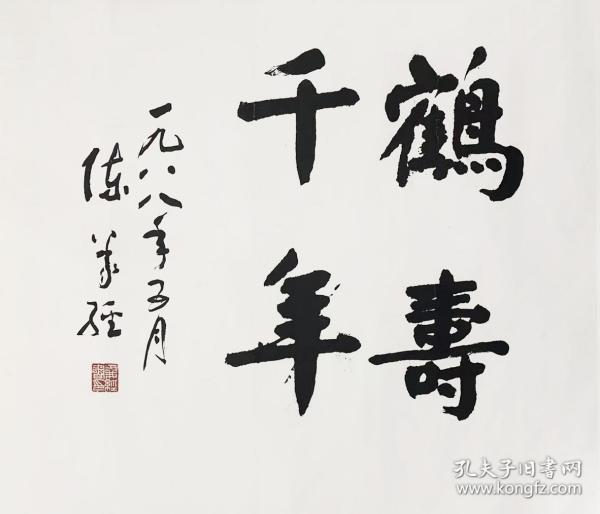 鶴壽
千年
一九八八年五月
陈義經
孔夫子旧书网
www.kongfz.com